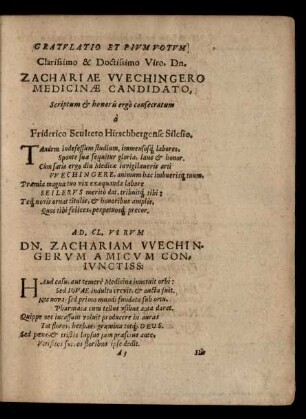 GRATVLATIO ET PIVM VOTUM
Clarissimo & Doctissimo Viro, Dn.
ZACHARIAE VVECHINGERO
MEDICINÆ CANDIDATO,
Scriptum & honoris ergò consecratum
à
Friderico Sculteto Hirschbergense Silesio.
TAndem indefessum studium, immensosq́ labores,
Sponte sua sequitur gloria, laus & honor.
Cùm satis ergo diu Medicæ invigilaveris arti
VVECHINGERE, animum hac imbuerisq́ tuum.
Præmia magna tuo vix exequenda labore
SEILERVS meritò dat, tribuitq́ tibi;
Teq́ novis ornat titulis, & honoribus amplis,
Quos tibi felices, perpetuosq́ precor.
AD. CL. VIRVM
DN. ZACHARIAM VVECHIN-
GERVM AMICVM CON-
IVNCTISS:
HAud casu, aut temerè Medicina innotuit orbi:
Sed JOVAE indultu crevit, & aucta fuit.
Nec novi: sed primo mundi fundata sub ortu,
Pharmaca cum tellus usibus apta daret.
Quippe nec incassum voluit producere in auras
Tot flores, herbas, gramina totq́ DEUS.
Sed
ante,
floribus ipse dedit.
A 3